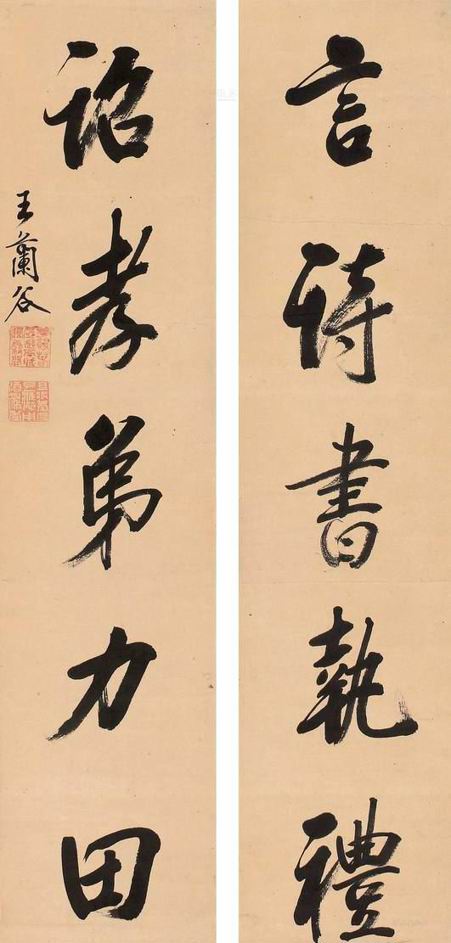 言詩書執禮
詔孝弟力田
王蘭谷